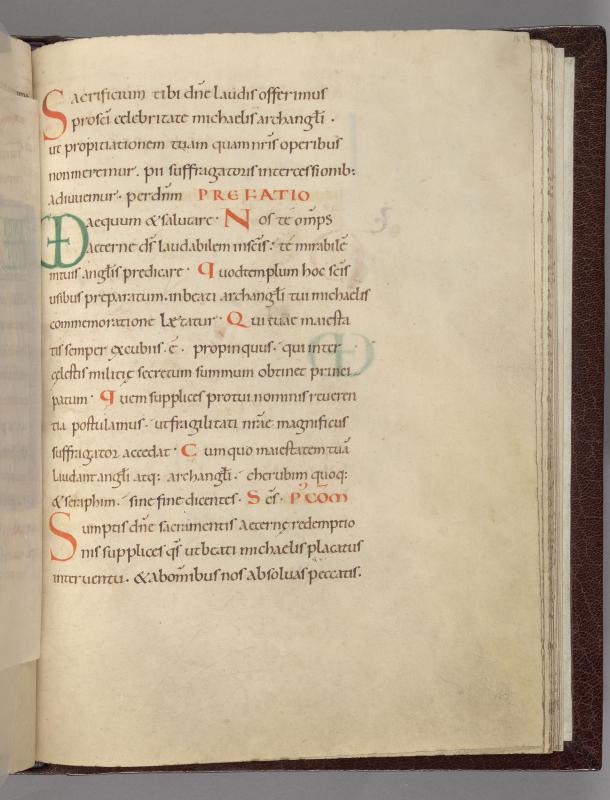 Sacrificium tibi dn̄e laudis offerimus
prosc̄i celebritate michaelis archangłi .
ut propitiationem tuam quam nr̄is operibus
non meremur. pii suffragatoris intercessionib:
adiuuemur. per dnm̄ PREFATIO
UD aequum & salutare. Nos te om̄ps
aeterne ds̄ laudabilem in sc̄is. te mirabilē
intuis angłis predicare. Quod templum hoc sc̄is
usibus preparatum. in beati archangłi tui michaelis
commemoratione lætatur. Qui tuae maiesta
tis semper excubiis . ē . propinquus. qui inter
cęlestis militię secretum summum obtinet princi
patum. Quem supplices pro tui nominis reueren
tia postulamus. ut fragilitati nr̄ae magnificus
suffragator accedat. Cum quo maiestatem tuā
laudant angłi atq: archangłi. cherubim quoq:
& seraphim. sine fine dicentes. Sc̄s. P' COM̄
Sumptis dn̄e sacramentis aeternę redemptio
nis supplices qs̄ ut beati michaelis placatus
interuentu. & ab om̄ibus nos absoluas peccatis.